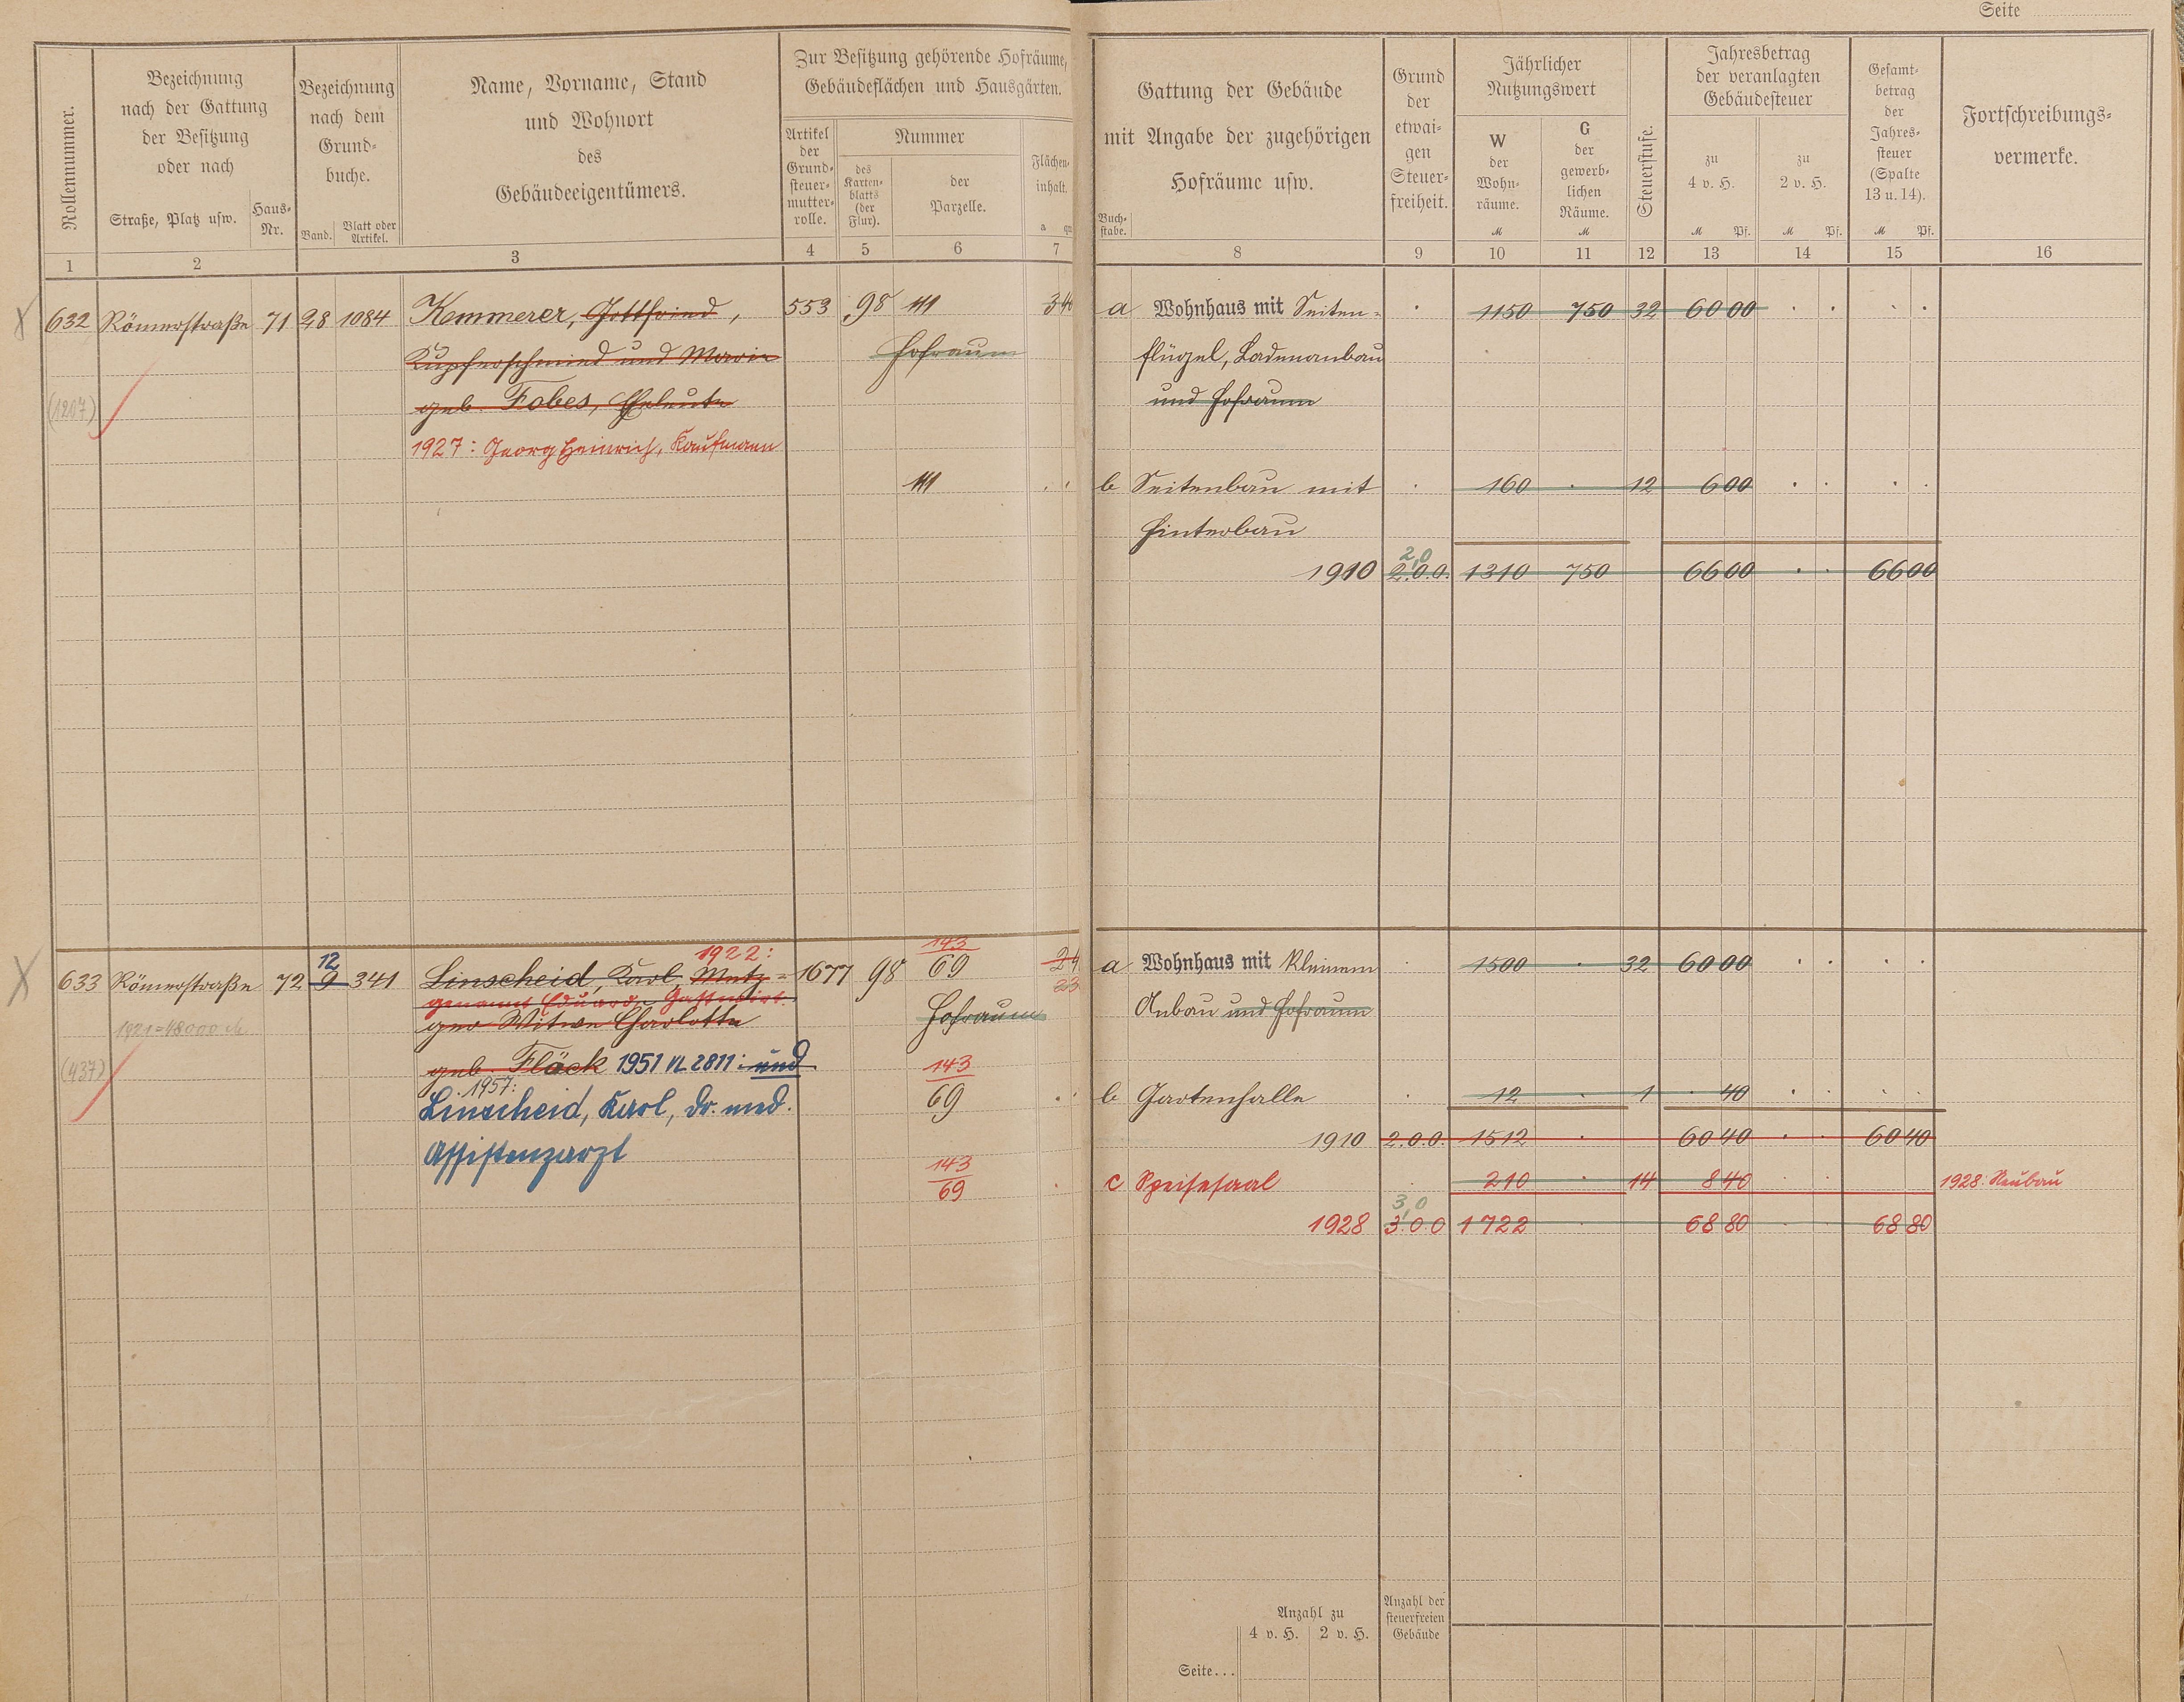 Seite
Rollennummer.
Bezeichnung
nach der Gattung
der Besitzung
oder nach
Straße, Platz usw.
Haus-
Nr.
Bezeichnung
nach dem
Grund-
buche.
Band.
Blatt oder
Artikel.
Name, Vorname, Stand
und Wohnort
des
Gebäudeeigentümers.
Zur Besitzung gehörende Hofräume,
Gebäudeflächen und Hausgärten.
Artikel
der
Grund-
steuer-
mutter-
rolle.
Nummer
des
Karten-
blatts
(der
Flur).
der
Parzelle.
Flächen-
inhalt.
a
Gattung der Gebäude
mit Angabe der zugehörigen
Hofräume usw.
Buch-
stabe.
Grund
der
etwai-
gen
Steuer-
freiheit.
Jährlicher
Nutzungswert
W
der
Wohn-
räume.
M
G
der
gewerb-
lichen
Räume.
M
Steuerstufe.
Jahresbetrag
der veranlagten
Gebäudesteuer
zu
4 v. H.
M Pf.
zu
2 v. H.
M Pf.
Gesamt-
betrag
der
Jahres-
steuer
(Spalte
13 u. 14).
M Pf.
Fortschreibungs-
vermerke.
1 2 3 4 5 6 7 8 9 10 11 12 13 14 15 16
632 Römerstraße 71 28 1084 Kemmerer, Gottfried, 553 98 111 a Wohnhaus mit Seiten- 1150 750 32 60 00
Kupferschmied und Maria Hofraum flügel, Ladenanbau
(1207) geb. Fobes, Eheleute und Hofraum
1927: Georg Heinrich, Kaufmann
111 b Seitenbau mit 160 12 6 00
Hinterbau
2,0
1910 2.0.0. 1310 750 66 00 66 00
1922: 143
12
633 Römerstraße 72 9 341 Linscheid, Karl, Metz- 1677 98 69 a Wohnhaus mit kleinem 1500 32 60 00
genannt Eduard, Gastwirt
1921=48000 M ger Witwe Charlotte Hofraum Anbau und Hofraum
(437) geb. Fläck 1951 VL 2811: und 143
1957:
Linscheid, Karl, Dr. med. 69 b Gartenhalle 12 1 40
1910 2.0.0. 1512 60 40 60 40
Assistenzarzt
143
69 c Speisesaal 210 14 8 40 1928: Neubau
3,0
1928 3.0.0 1722 68 80 68 80
Anzahl zu
4 v. H. 2 v. H.
Anzahl der
steuerfreien
Gebäude
Seite...